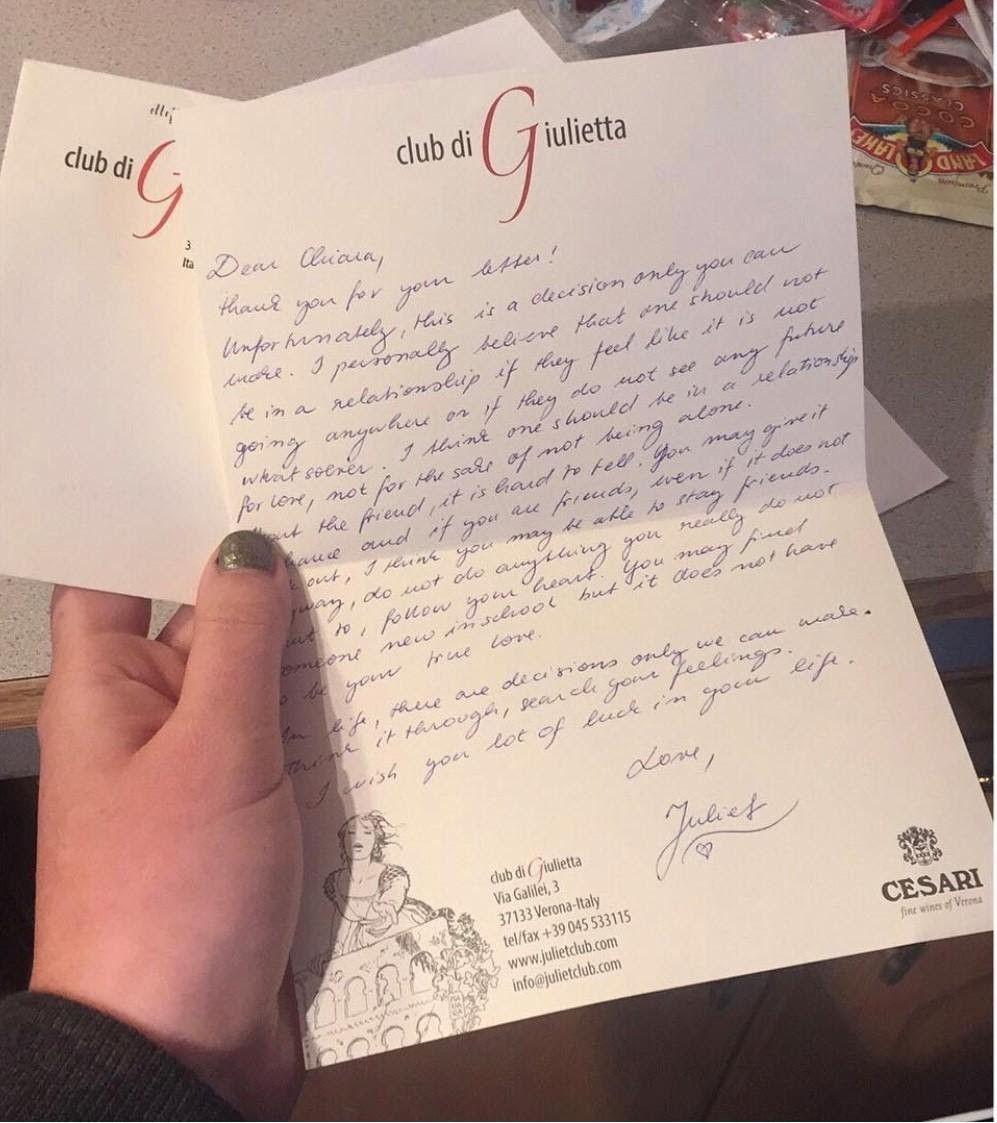 club di G
3
Ita
club di Giulietta
Dear Chiara,
thank you for your letter!
Unfortunately, this is a decision only you can
make. I personally believe that one should not
be in a relationship if they feel like it is not
going anywhere or if they do not see any future
whatsoever. I think one should be in a relationship
for love, not for the sake of not being alone.
out the friend, it is hard to tell. You may give it
hance and if you are friends, even if it does not
k out, I think you may be able to stay friends.
yway, do not do anything you really do not
ant to, follow your heart. You may find
omeone new in school but it does not have
o be your true love.
In life, there are decisions only we can make.
think it through, search your feelings.
I wish you lot of luck in your life.
Love,
Juliet
club di Giulietta
Via Galilei, 3
37133 Verona-Italy
tel/fax +39 045 533115
www.julietclub.com
info@julietclub.com
CESARI
fine wines of Verona
Premium
LAND LAKES
COCOA
CLASSICS